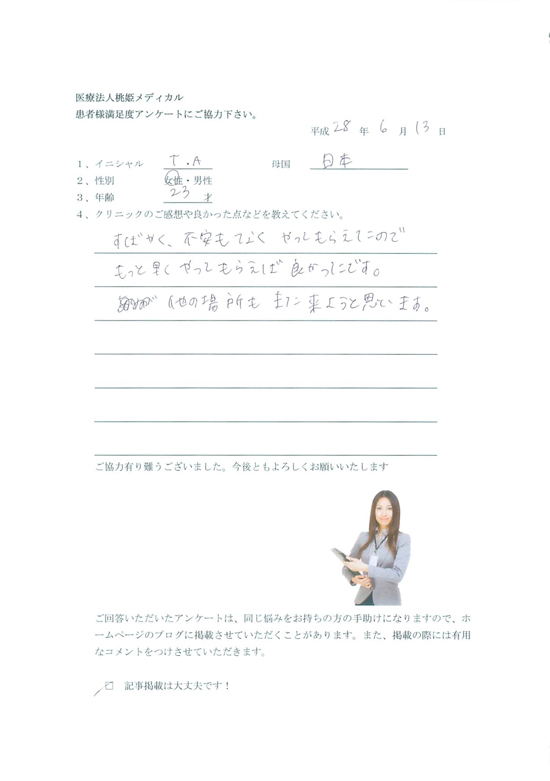 医療法人桃姫メディカル
患者様満足度アンケートにご協力下さい。
平成 28 年 6 月 13 日
1、イニシャル T.A 母国 日本
2、性別 女性・男性
3、年齢 23 才
4、クリニックのご感想や良かった点などを教えてください。
すばやく、不安もなく やってもらえたので
もっと早くやってもらえば良かったです。
他の場所も また来ようと思います。
ご協力有り難うございました。今後ともよろしくお願いいたします
ご回答いただいたアンケートは、同じ悩みをお持ちの方の手助けになりますので、ホ
ームページのブログに掲載させていただくことがあります。また、掲載の際には有用
なコメントをつけさせていただきます。
記事掲載は大丈夫です！